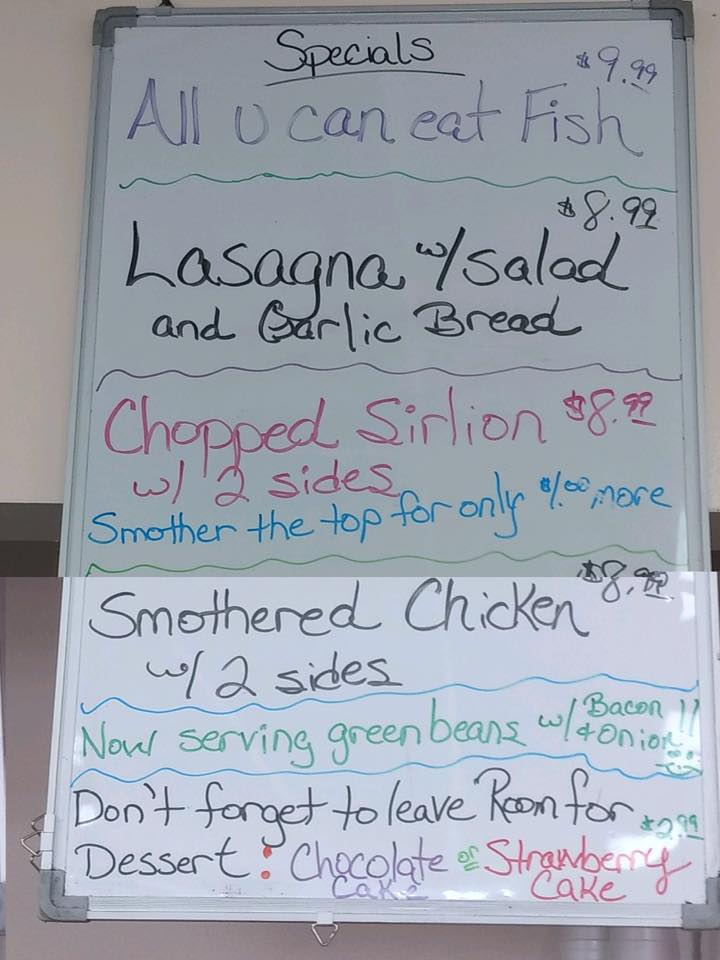 Specials
$9.99
All U can eat Fish
$8.99
Lasagna w/ salad
and Garlic Bread
Chopped Sirlion $8.99
w/ 2 sides
Smother the top for only $1.00 more
$8.99
Smothered Chicken
w/ 2 sides
Now serving green beans w/ Bacon !!
+ Onion
Don't forget to leave Room for
$2.99
Dessert: Chocolate or Strawberry
Cake Cake